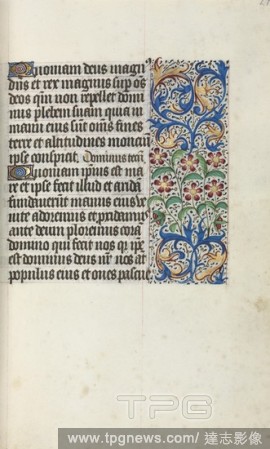 Quoniam deus magnus
dñs et rex magnus sup oẽs
deos qm non repellet domi
nus plebem suam quia in
manu eius sũt omẽs fines
terre et altitudines montiũ
ipse conspicit. Dominus tecũ
Quoniam ipius est ma
re et ipse fecit illud et aridã
fundauerũt manus eius ve
nite adoremus et pcidamꝯ
ante deum ploremus corã
domino qui fecit nos qr ipẽ
est dominus deus nr̃ nos aũt
populus eius et oues pascue
TPG
www.tpgnews.com / 達志影像